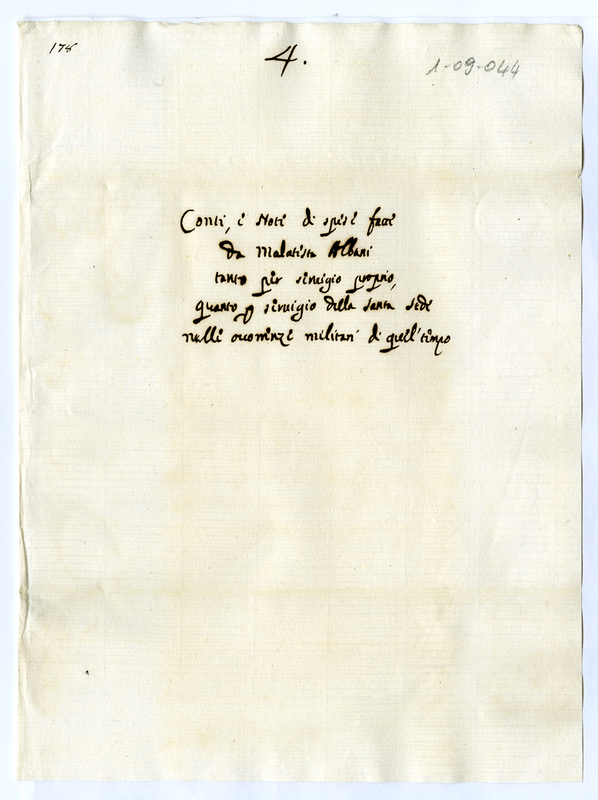 178
4.
1-09-044
Conti, e Note di spese fatte
da Malatesta Albani
tanto per servigio proprio,
quanto p servigio della Santa Sede
nelle occorenze militari di quel tempo